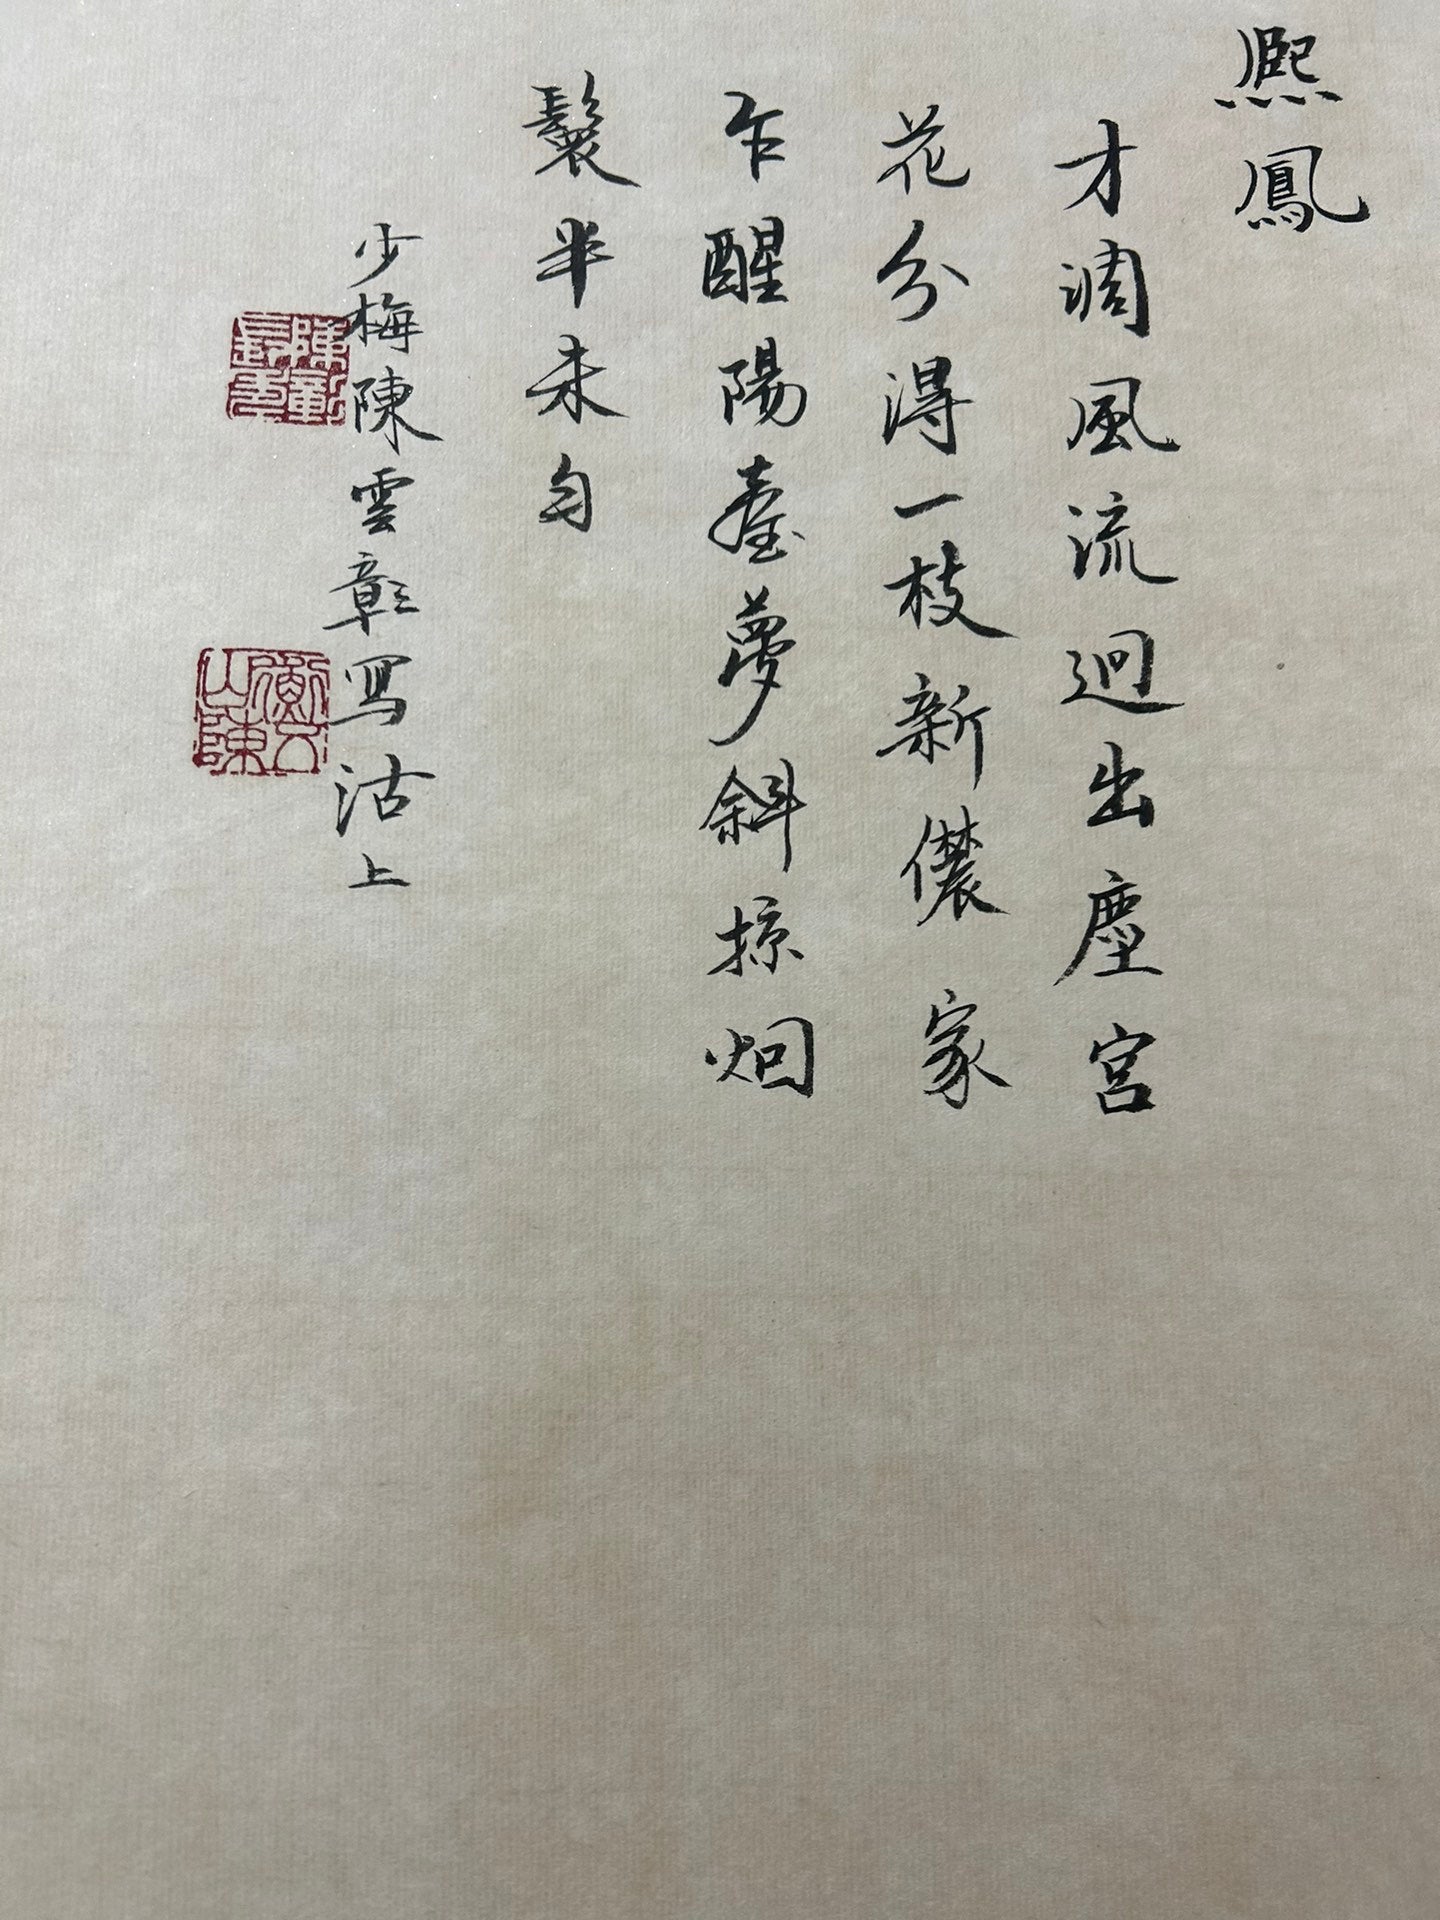 熙鳳
才調風流迥出塵宮
花分得一枝新儂家
乍醒陽臺夢斜掠烟
鬟半未匀
少梅陳雲彰寫沽上